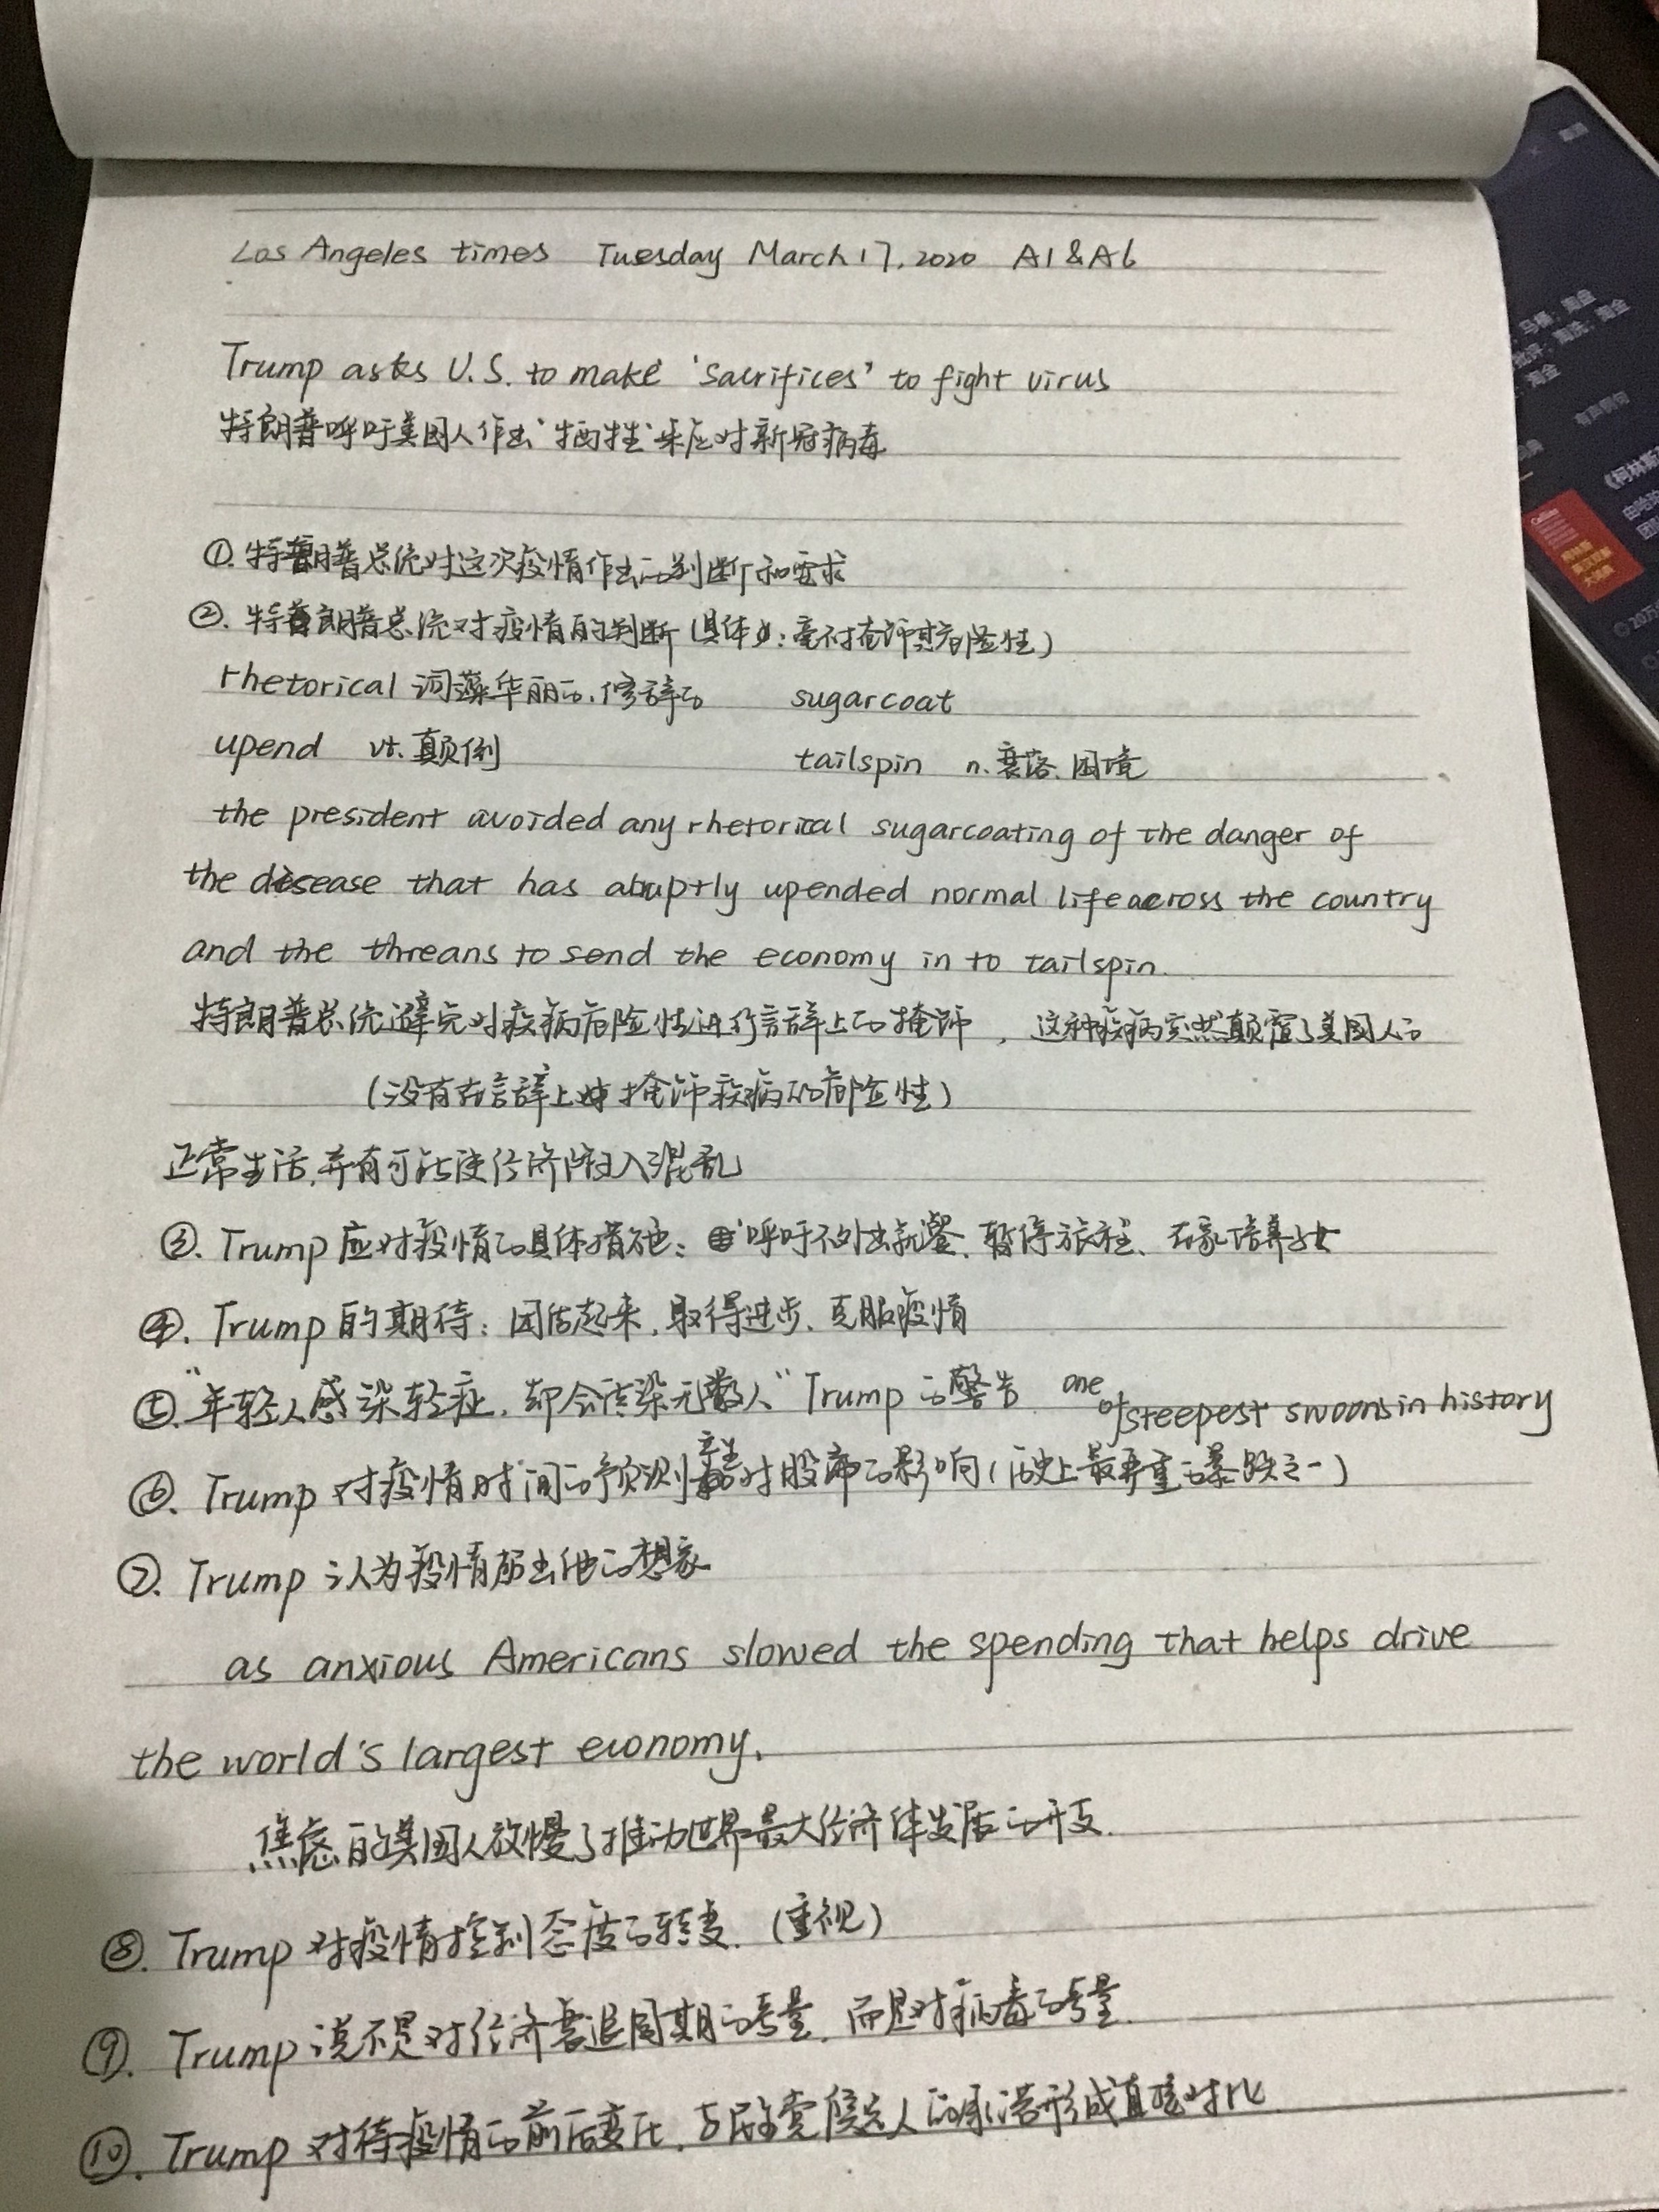 Los Angeles times Tuesday March 17, 2020 A1 & A6
Trump asks U.S. to make 'sacrifices' to fight virus
特朗普呼吁美国人作出'牺牲'来应对新冠病毒
①. 特朗普总统对这次疫情作出的判断和要求
②. 特朗普总统对疫情的判断 (具体: 毫不掩饰其危险性)
rhetorical 词藻华丽的、修辞的 sugarcoat
upend vt. 颠倒 tailspin n. 衰落、困境
the president avoided any rhetorical sugarcoating of the danger of
the disease that has abuptly upended normal life across the country
and the threans to send the economy in to tailspin.
特朗普总统避免对疾病危险性进行言辞上的掩饰, 这种疾病突然颠覆了美国人的
(没有在言辞上 掩饰疾病的危险性)
正常生活, 并有可能使经济陷入混乱
③. Trump 应对疫情的具体措施: 呼吁不外出就餐、暂停旅程、在家培养子女
④. Trump 的期待: 团结起来, 取得进步、克服疫情
⑤. "年轻人感染轻症, 却会传染无数人" Trump 的警告 one of steepest swoons in history
⑥. Trump 对疫情时间的预测产生对股市的影响 (历史上最严重的暴跌之一)
⑦. Trump 认为疫情超出他的想象
as anxious Americans slowed the spending that helps drive
the world's largest economy.
焦虑的美国人放慢了推动世界最大经济体发展的开支.
⑧. Trump 对疫情控制态度的转变. (重视)
⑨. Trump 说不是对经济衰退周期的考量, 而是对病毒的考量.
⑩. Trump 对待疫情的前后变化, 与民主党候选人的承诺形成直接对比
马桶; 淘金
淘洗; 淘金
淘金
有声例句
《柯林斯
Collins